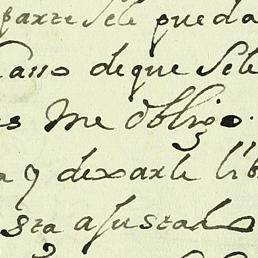 parte Sele pueda
Caso de que Sele
s Me obligo.
a y dexarle lib
sta ajustado